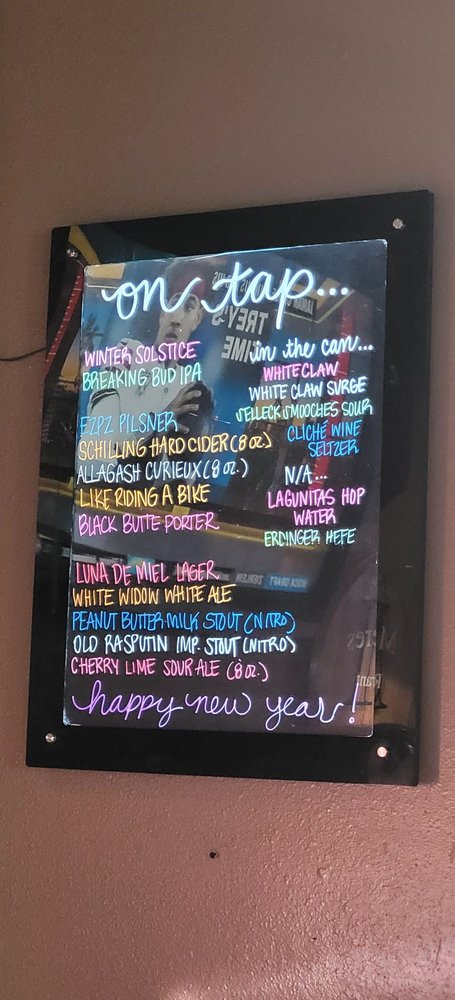 on tap...
WINTER SOLSTICE
BREAKING BUD IPA
EZPZ PILSNER
SCHILLING HARD CIDER (8 oz.)
ALLAGASH CURIEUX (8 oz.)
LIKE RIDING A BIKE
BLACK BUTTE PORTER
LUNA DE MIEL LAGER
WHITE WIDOW WHITE ALE
PEANUT BUTTER MILK STOUT (NITRO)
OLD RASPUTIN IMP. STOUT (NITRO)
CHERRY LIME SOUR ALE (8 oz.)
in the can...
WHITE CLAW
WHITE CLAW SURGE
SELLECK SMOOCHES SOUR
CLICHÉ WINE
SELTZER
N/A...
LAGUNITAS HOP
WATER
ERDINGER HEFE
happy new year!